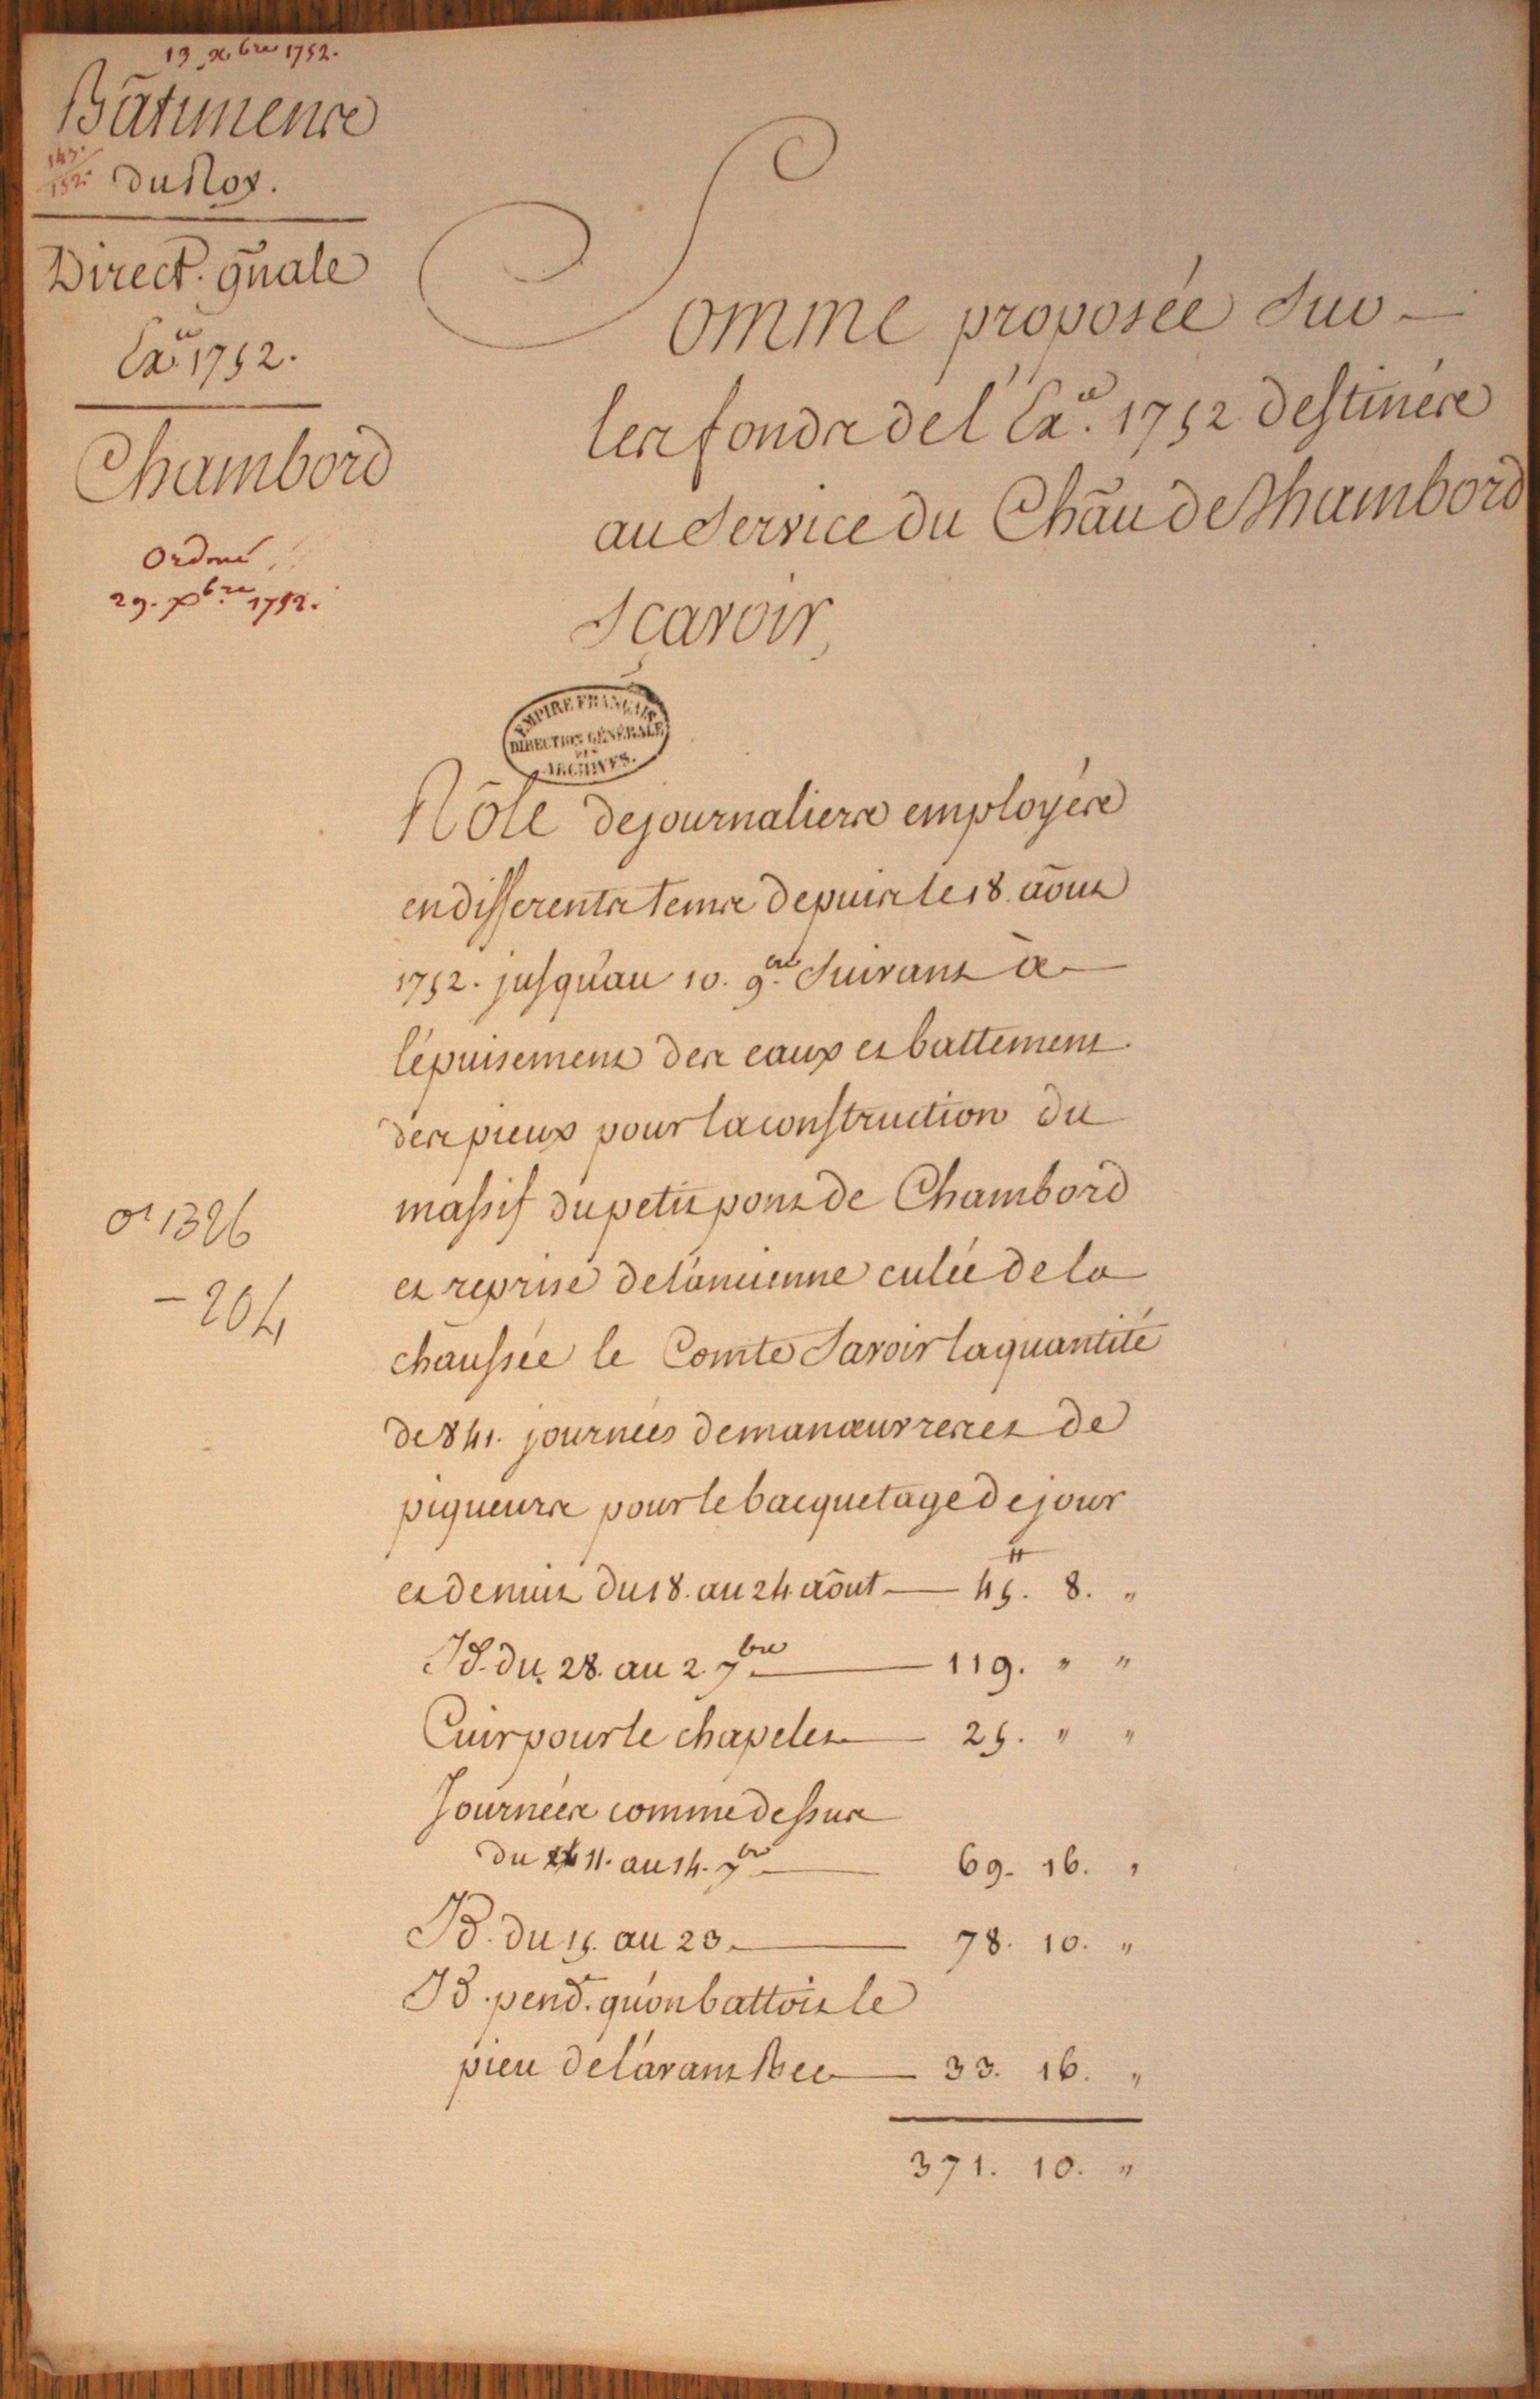 13 xbre 1752.
Bâtimens
143.
152.
du Roy.
Direct. gñale
Exce 1752.
Chambord
Ordoné
29. Xbre 1752.
Somme proposée sur
les fonds de l'Exce. 1752 destinés
au Service du Chãu de Chambord
Sçavoir,
EMPIRE FRANÇAIS
DIRECTION GÉNÉRALE
DES
ARCHIVES.
Rôle de journaliers employés
en differents tems depuis le 18. aôust
1752. jusqu'au 10. 9bre suivant à
l'épuisement des eaux et battement
des pieux pour la construction du
massif du petit pont de Chambord
et reprise de l'ancienne culée de la
chaussée le Comte Savoir la quantité
de 841. journées de manœuvres et de
piqueurs pour le bacquetage de jour
et de nuit du 18. au 24. aôut — 45.# 8. "
Id. du 28. au 2. 7bre — 119. " "
Cuir pour le chapelet — 25. " "
Journées comme dessus
du 11. au 14. 7bre — 69. 16. "
Id. du 15. au 23. — 78. 10. "
Id. pendt. qu'on battoit le
pieu de l'avant Bec — 33. 16. "
371. 10. "
O1 1326
- 204